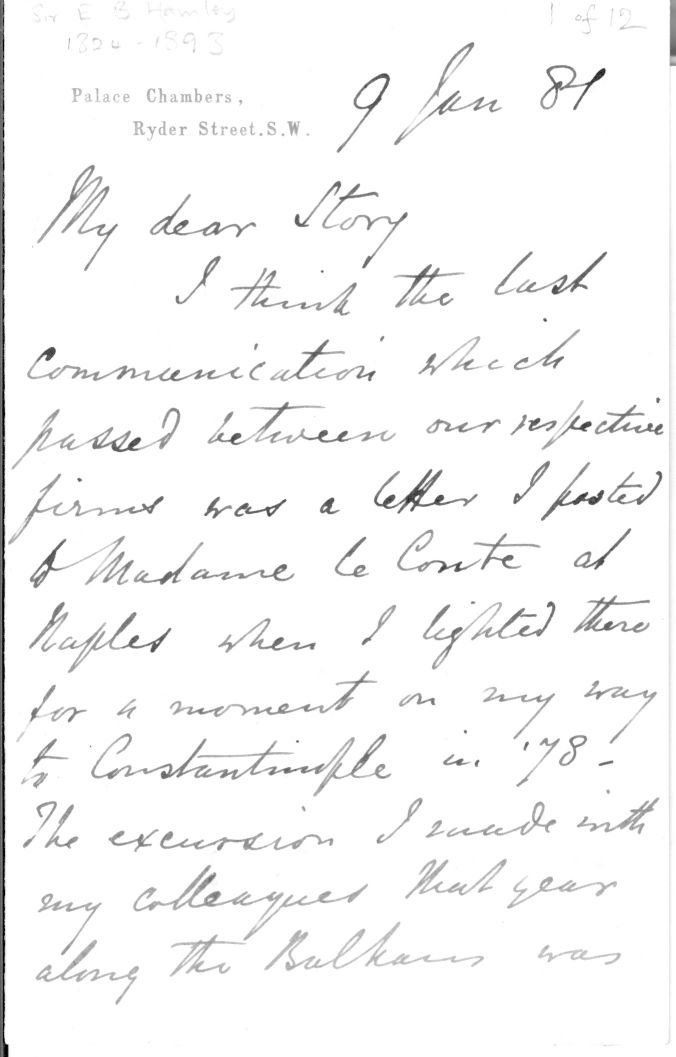 Sir E B Hamley
1824 - 1893
1 of 12
Palace Chambers,
Ryder Street.S.W.
9 Jan 81
My dear Story
I think the last
communication which
passed between our respective
firms was a letter I posted
to Madame le Conte at
Naples when I lighted there
for a moment on my way
to Constantinople in '78 -
The excursion I made with
my colleagues that year
along the Balkans was